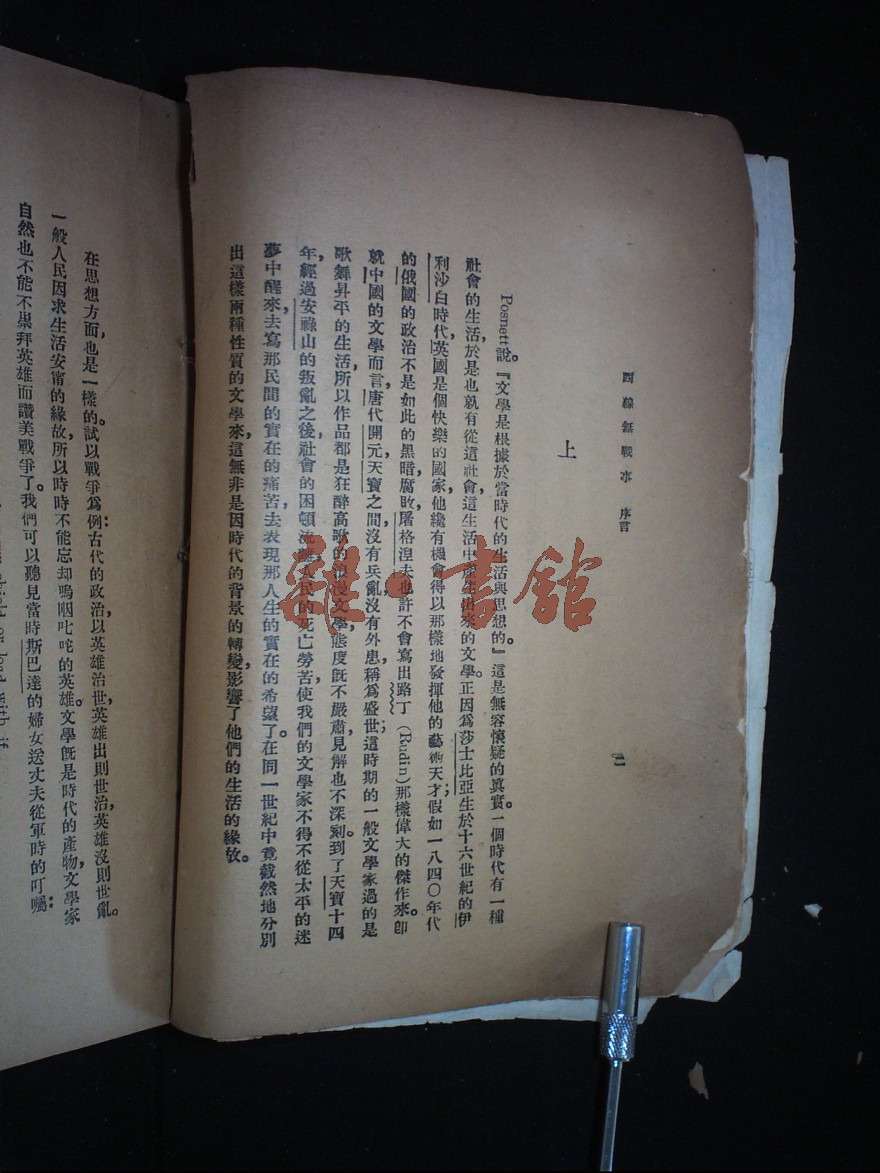 西線無戰事 序言
二
上
Posnett說。『文學是根據於當時代的生活與思想的。』這是無容懷疑的眞實。一個時代有一種
社會的生活，於是也就有從這社會，這生活中產生出來的文學。正因爲莎士比亞生於十六世紀的伊
利沙白時代，英國是個快樂的國家，他纔有機會得以那樣地發揮他的藝術天才；假如一八四〇年代
的俄國的政治不是如此的黑暗腐敗，屠格涅夫也許不會寫出路丁（Rudin）那樣偉大的傑作來。即
就中國的文學而言，唐代開元天寶之間，沒有兵亂，沒有外患，稱爲盛世；這時期的一般文學家過的是
歌舞昇平的生活，所以作品都是狂醉高歌的浪漫文學，態度既不嚴肅，見解也不深刻。到了天寶十四
年，經過安祿山的叛亂之後，社會的困頓流離，人民的死亡勞苦，使我們的文學家不得不從太平的迷
夢中醒來，去寫那民間的實在的痛苦，去表現那人生的實在的希望了。在同一世紀中，竟截然地分別
出這樣兩種性質的文學來，這無非是因時代的背景的轉變，影響了他們的生活的緣故。
在思想方面，也是一樣的。試以戰爭爲例：古代的政治，以英雄治世，英雄出則世治，英雄沒則世亂。
一般人民因求生活安甯的緣故，所以時時不能忘却嗚咽叱咤的英雄。文學既是時代的產物，文學家
自然也不能不崇拜英雄而讚美戰爭了。我們可以聽見當時斯巴達的婦女送丈夫從軍時的叮囑：
雜·書館